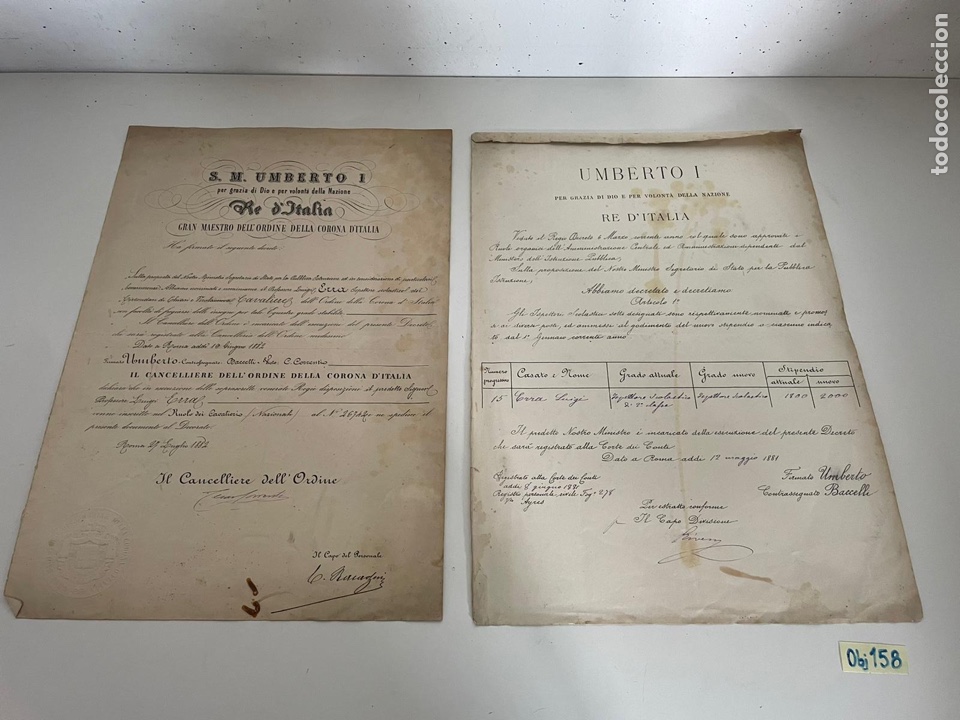 S. M. UMBERTO I
per grazia di Dio e per volontà della Nazione
Re d'Italia
GRAN MAESTRO DELL'ORDINE DELLA CORONA D'ITALIA
Ha firmato il seguente decreto
Sulla proposta del Nostro Ministro Segretario di Stato per la Pubblica Istruzione ed in considerazione di particolari
Abbiamo nominato e nominiamo il Professore Luigi Erra Ispettore scolastico del
Cavaliere dell'Ordine della Corona d'Italia
con facoltà di fregiarsi delle insegne per tale Equestre grado stabilite
Il Cancelliere dell'Ordine è incaricato dell'esecuzione del presente Decreto
che sarà registrato alla Cancelleria dell'Ordine medesimo
Dato a Roma addì 10 Giugno 1882
Firmato Umberto Contrassegnato Baccelli C. Correnti
IL CANCELLIERE DELL'ORDINE DELLA CORONA D'ITALIA
dichiara che in esecuzione delle premesse Regie disposizioni il predetto Signor
Professore Luigi Erra
venne inscritto nel Ruolo dei Cavalieri (Nazionali) al N.° e spedisce il
presente documento al Decorato
Roma 27 Luglio 1882
Il Cancelliere dell'Ordine
Il Capo del Personale
UMBERTO I
PER GRAZIA DI DIO E PER VOLONTÀ DELLA NAZIONE
RE D'ITALIA
Veduto il Regio Decreto 6 Marzo corrente anno col quale sono approvati i
Ruoli organici dell'Amministrazione Centrale ed Amministrazioni dipendenti dal
Ministero dell'Istruzione Pubblica;
Sulla proposizione del Nostro Ministro Segretario di Stato per la Pubblica
Istruzione;
Abbiamo decretato e decretiamo
Articolo 1°
Gli Ispettori Scolastici sotto designati sono rispettivamente nominati e promos
si ai diversi posti ed ammessi al godimento del nuovo stipendio a ciascuno indica
to dal 1° Gennaio corrente anno.
Numero progressivo Casato e Nome Grado attuale Grado nuovo Stipendio
attuale nuovo
15 Erra Luigi Ispettore Scolastico Ispettore Scolastico 1800 2000
di 2ª classe
Il predetto Nostro Ministro è incaricato della esecuzione del presente Decreto
che sarà registrato alla Corte dei Conti
Dato a Roma addì 12 maggio 1881
Registrato alla Corte dei Conti
addì 8 giugno 1881
Registro personale civile Fog.° 278
Ayres
Firmato Umberto
Contrassegnato Baccelli
Per estratto conforme
p. Il Capo Divisione
Obj 158
todocoleccion
todocoleccion.net